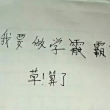 我要做学霸霸
草!算了